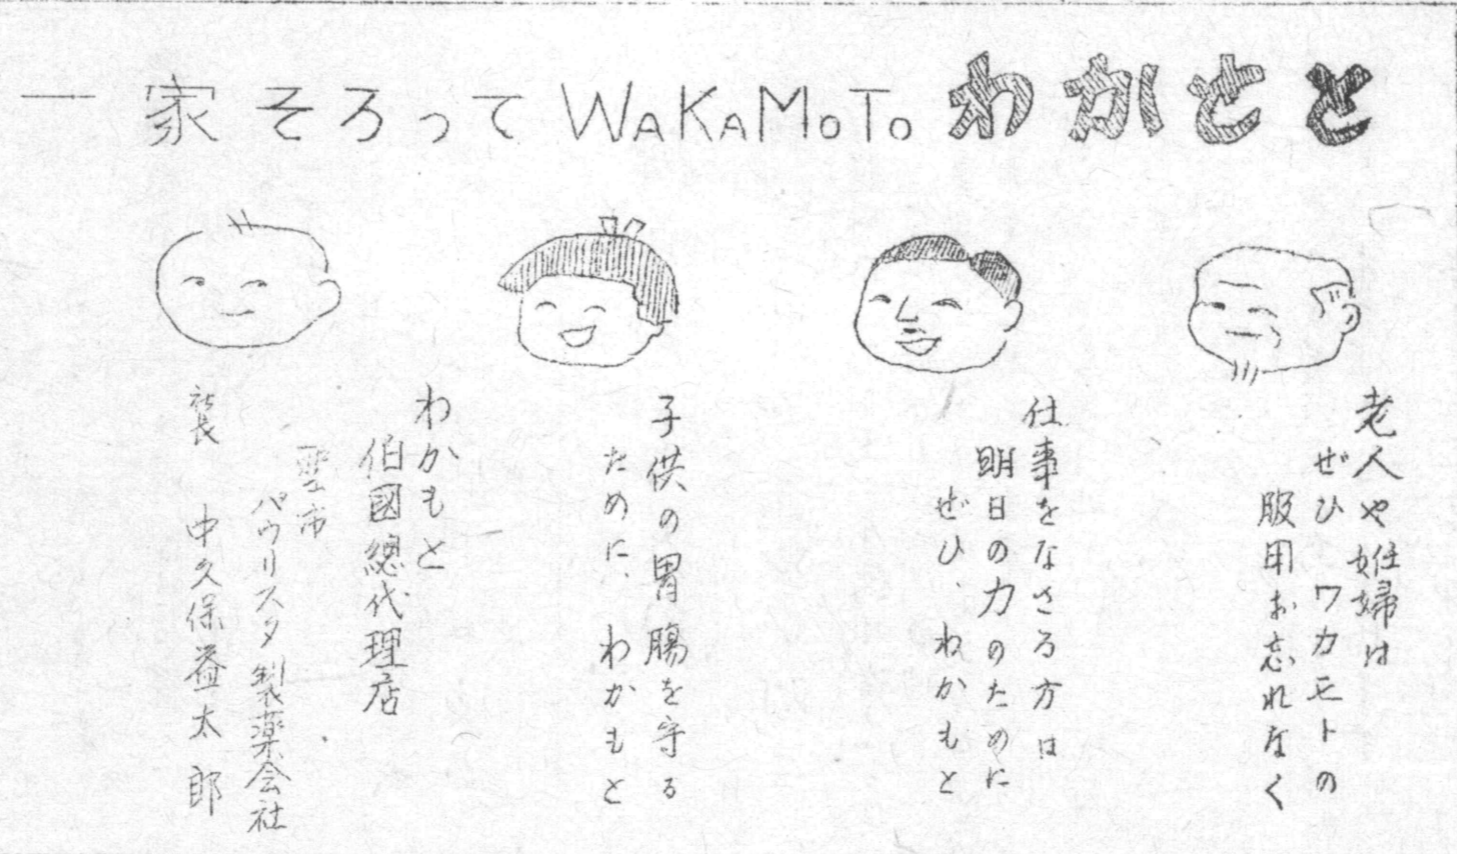 一家そろって WAKAMOTO わかもと
老人や姙婦は
ぜひ、ワカモトの
服用お忘れなく
仕事をなさる方は
明日の力のために
ぜひ、わかもと
子供の胃腸を守る
ために、わかもと
わかもと
伯國總代理店
聖市
パウリスタ製薬会社
社長 中久保益太郎